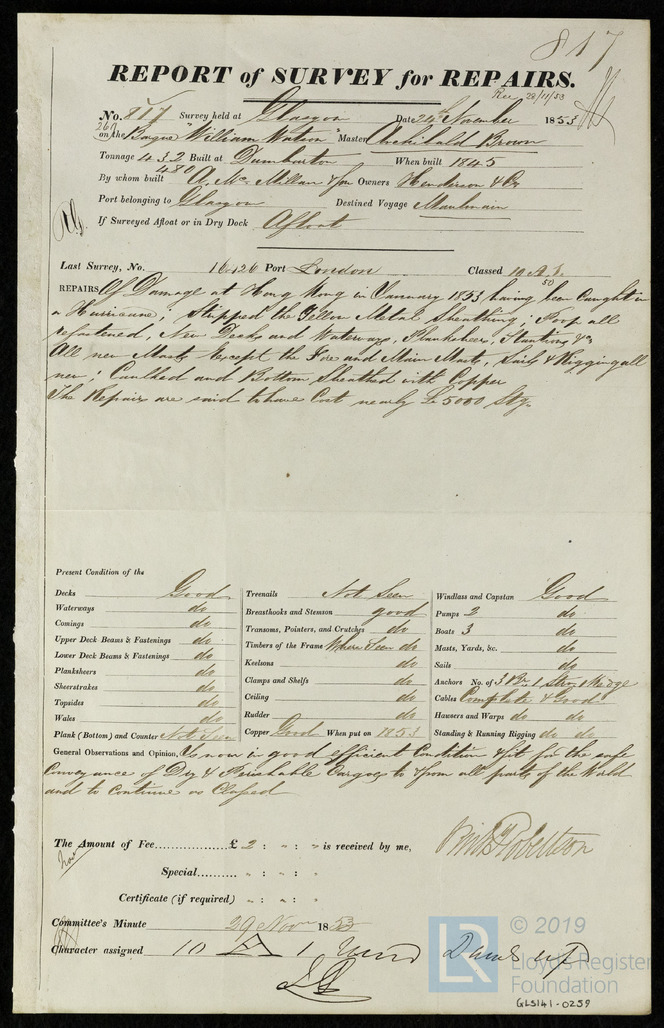 817
REPORT of SURVEY for REPAIRS.
Rec 28/11/53
No. 817 Survey held at Glasgow Date 24th November 1853
260 on the Barque "William Watson" Master Archibald Brown
Tonnage 432 Built at Dumbarton When built 1845
480
By whom built A. Mc Millan & Son Owners Henderson & Co
Port belonging to Glasgow Destined Voyage Maulmain
If Surveyed Afloat or in Dry Dock Afloat
Last Survey, No. 16126 Port London Classed 10 A.1.
50
REPAIRS Of Damage at Hong Kong in January 1853 having been Caught in
a Hurricane; Stripped the Yellow Metal Sheathing; Poop all
refastened, New Decks and Waterways, Planksheers, Stantions, &c
All new Masts except the Fore and Main Mast, Sails & Rigging all
new; Caulked and Bottom Sheathed with Copper
The Repairs are said to have Cost nearly £5000 Stg.
Present Condition of the
Decks Good
Waterways do
Comings do
Upper Deck Beams & Fastenings do
Lower Deck Beams & Fastenings do
Planksheers do
Sheerstrakes do
Topsides do
Wales do
Plank (Bottom) and Counter Not Seen
Treenails Not Seen
Breasthooks and Stemson good
Transoms, Pointers, and Crutches do
Timbers of the Frame Where Seen do
Keelsons do
Clamps and Shelfs do
Ceiling do
Rudder do
Copper Good When put on 1853
Windlass and Capstan Good
Pumps 2 do
Boats 3 do
Masts, Yards, &c. do
Sails do
Anchors No. of 3 Br. 1 Strm 1 Kedge
Cables Complete & Good
Hawsers and Warps do do
Standing & Running Rigging do do
General Observations and Opinion, Is now in good efficient Condition & fit for the safe
Conveyance of Dry & Perishable Cargoes to & from all parts of the World
and to Continue as Classed
The Amount of Fee £ 2 : " : " is received by me,
Special " : " : "
Certificate (if required) " : " : "
Robertson
Committee's Minute 29 Nov 1853
Character assigned 10 A 1
LR
© 2019
Lloyd's Register
Foundation
GLS141-0259